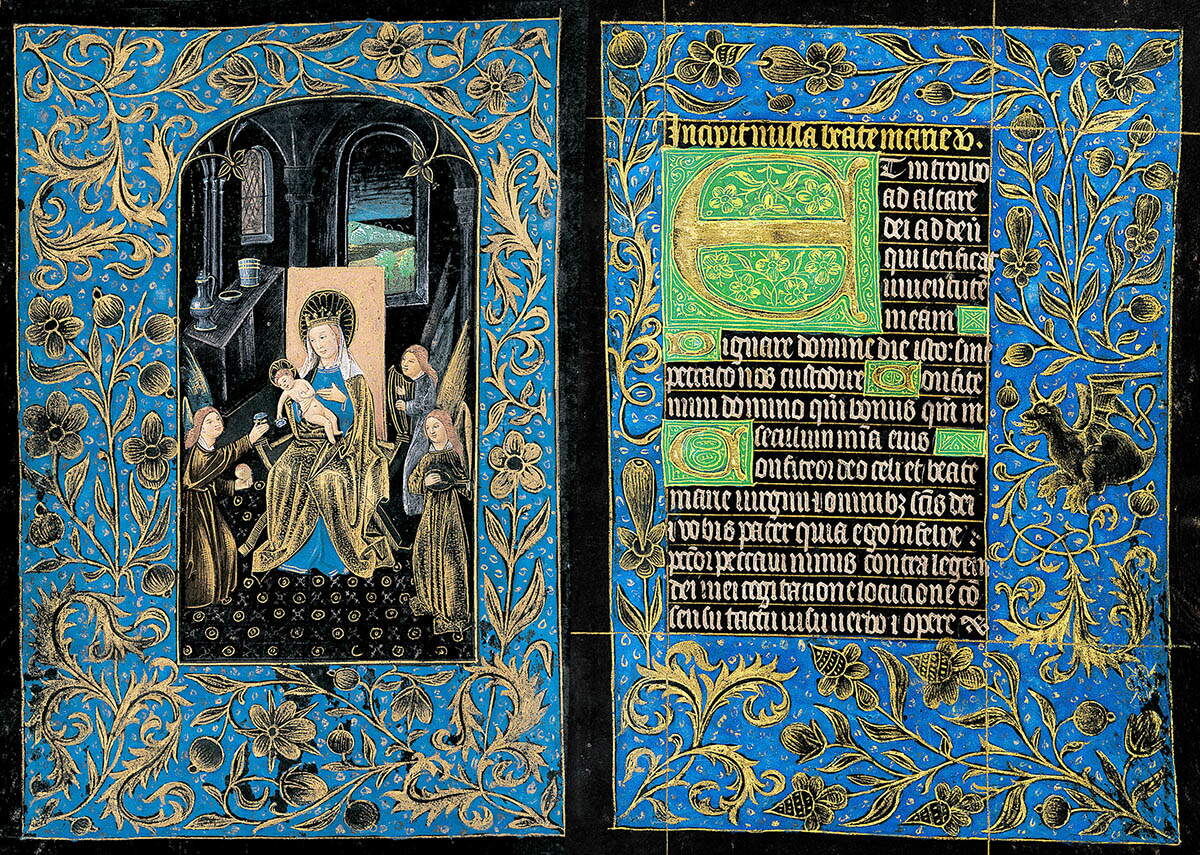 Incipit missa beate marie v.
Et introibo
ad altare
dei ad deū
qui letificat
iuuentutē
meam
Dignare domine die isto: sine
peccato nos custodire Confite
mini domino qm̄ bonus qm̄ in
seculum mīa eius
Confiteor deo celi et beate
marie virgini ⁊ omnibꝫ scīs dei
⁊ vobis pater quia ego
peccaui nimis contra legem
dei mei cogitatione locutione cō
sensu tactu visu verbo ⁊ opere